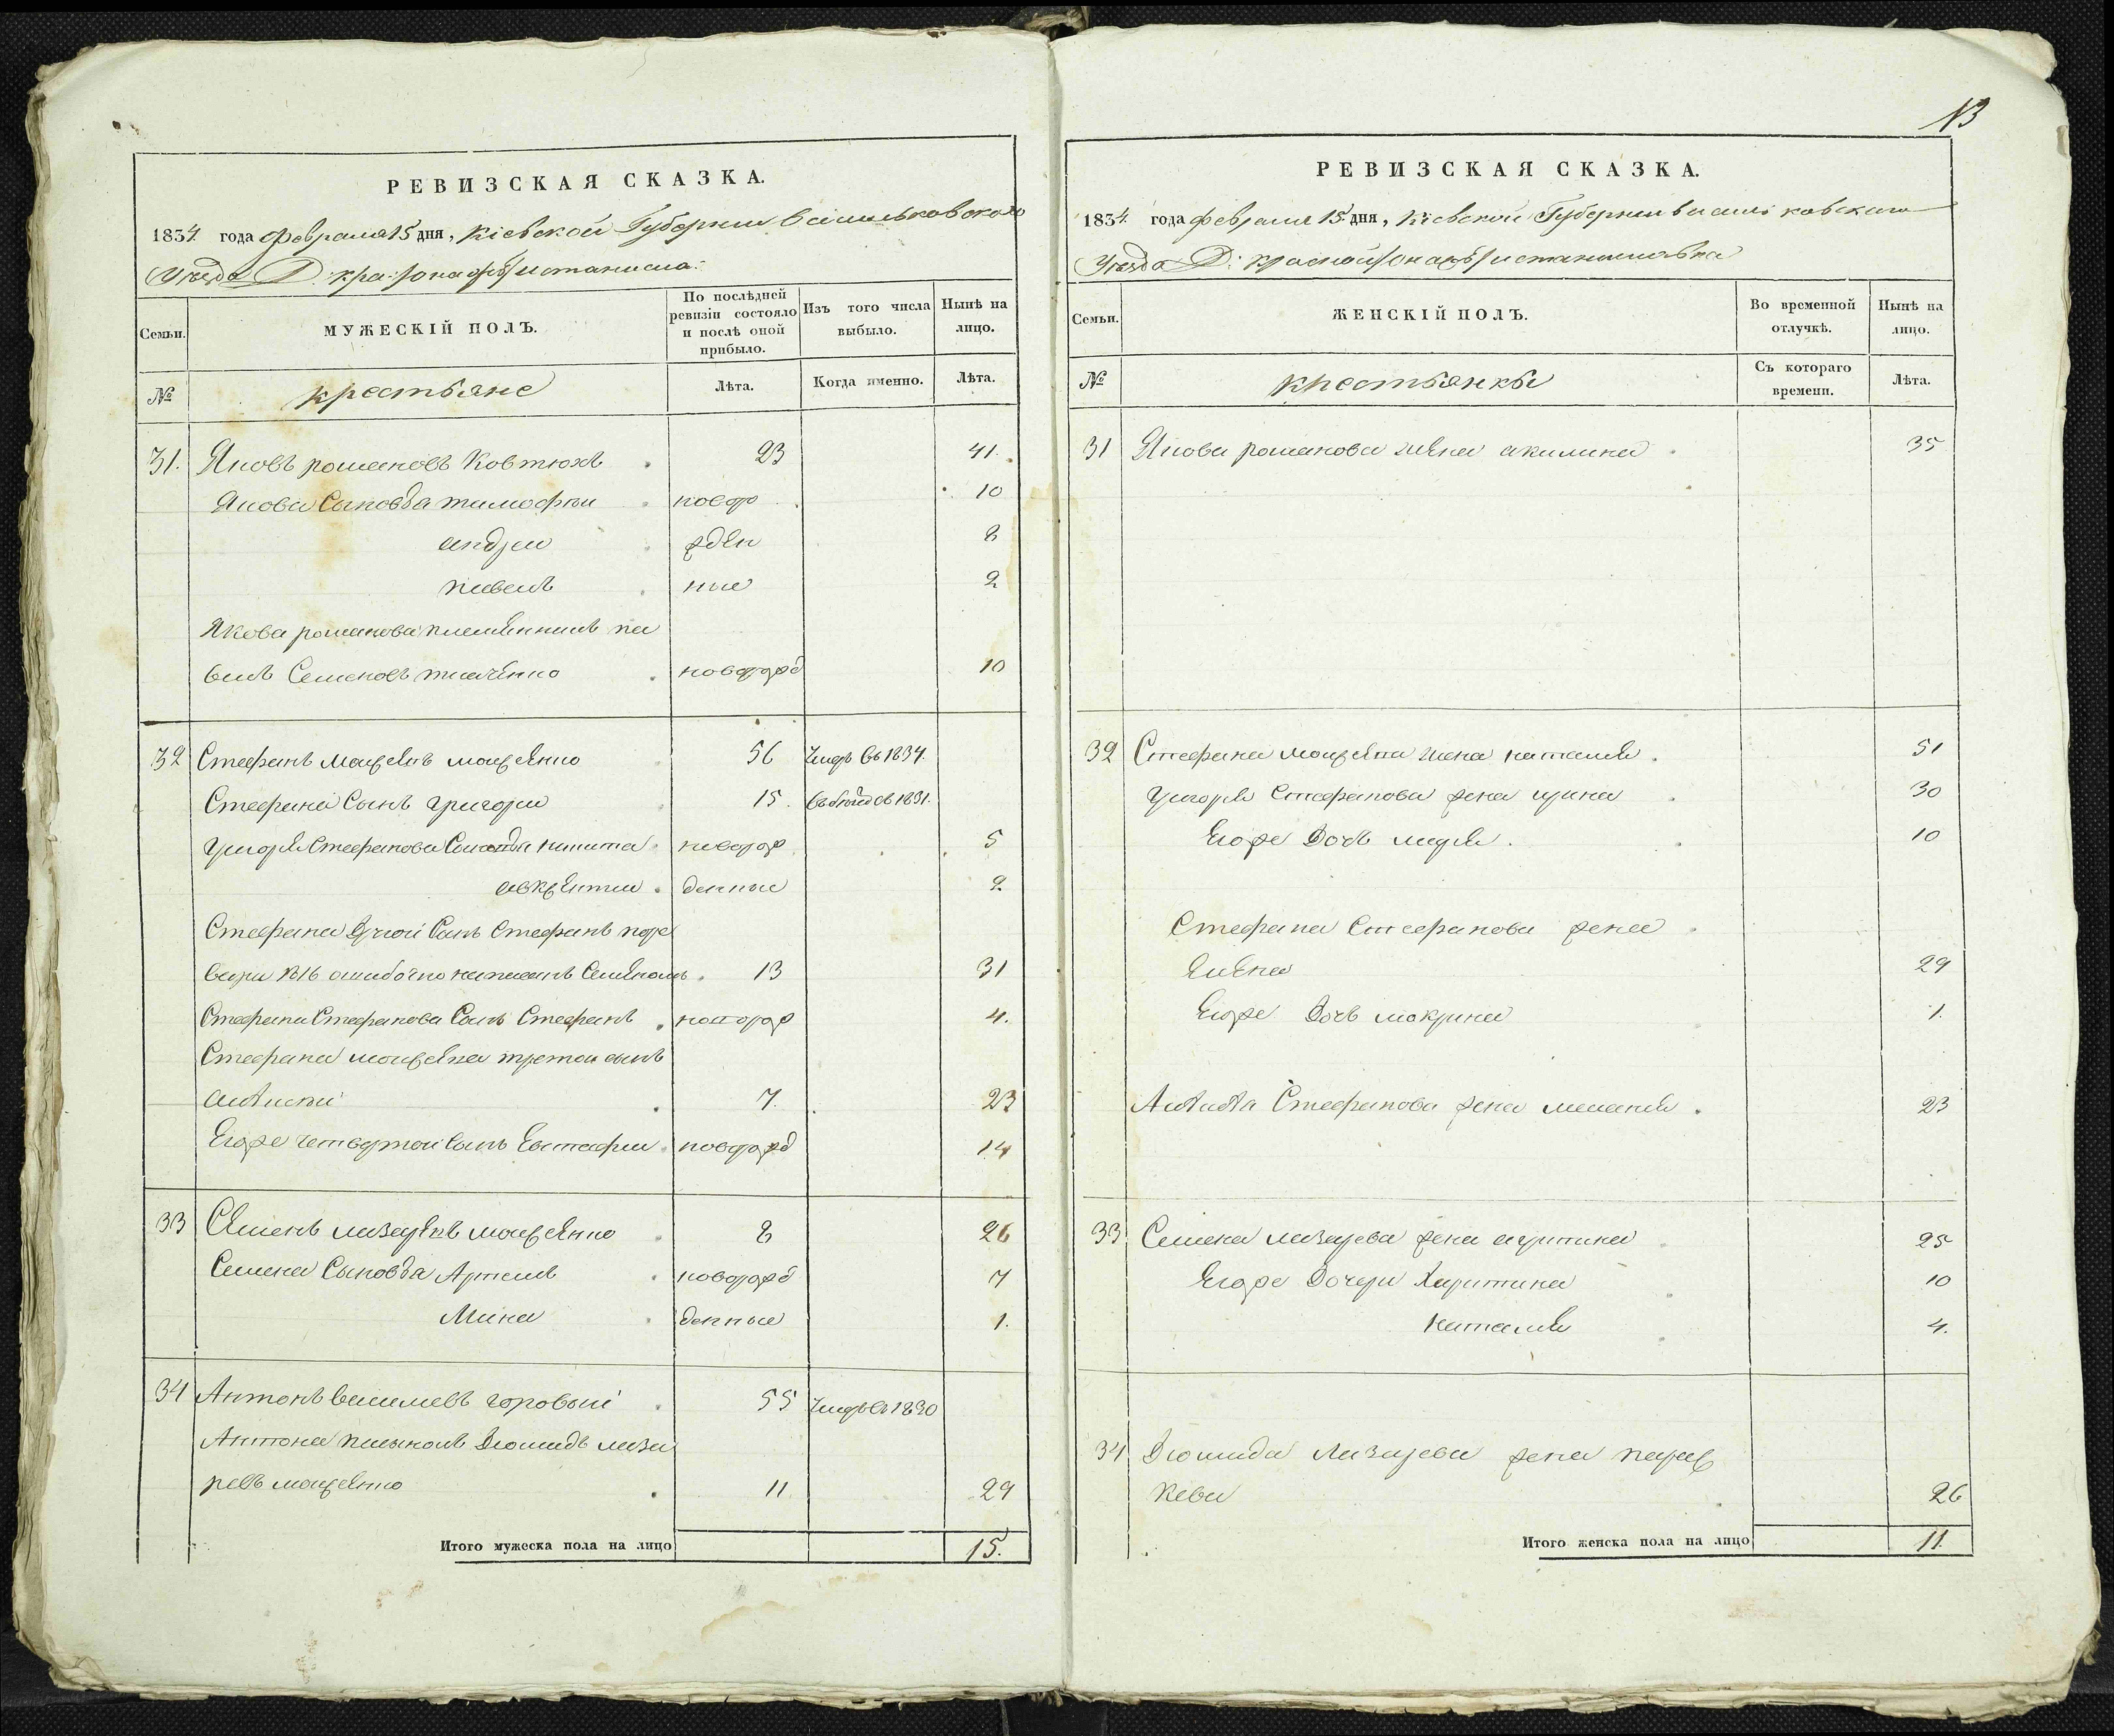 РЕВИЗСКАЯ СКАЗКА.
1834. года февраля 15 дня, Кіевской Губерніи Васильковского
Уезда Д:
Семьи.
МУЖЕСКІЙ ПОЛЪ.
По послѣдней ревизіи состояло и послѣ оной прибыло.
Изъ того числа выбыло.
Нынѣ на лицо.
№
крестьяне
Лѣта.
Когда именно.
Лѣта.
31. Яковъ романовъ Ковтюхъ 23 41.
Якова Сыновья тимофѣи новоро 10
андреи жден 8
павелъ ные 2
Якова романова племенникъ па
велъ Семеновъ ткаченко новорожд 10
32 Стефанъ моисѣенко 56 Умеръ въ 1834.
Стефана Сынъ григори 15. въ 1831.
григорія Стефанова Сыновья никита новорож 5
авксентіи денные 2.
Стефана Другои Сынъ Стефанъ по ре
визіи №16 ошибочно написанъ Семеномъ. 13 31
Стефана Стефанова Сынъ Стефанъ новорож 4.
Стефана третои сынъ
алексѣи 7. 23
Егоже четвертои Сынъ Евстафіи новорожд 14
33 Семенъ лазаревъ моисѣенко 8 26
Семена Сыновья Артемъ новорожд 7
Мина денные 1.
34 Антонъ василіевъ горовыи 55 Умеръ въ 1830
Антона Диомидъ лаза
ревъ моисѣенко 11 29
Итого мужеска пола на лицо 15.
13
РЕВИЗСКАЯ СКАЗКА.
1834. года февраля 15 дня, Кіевской Губерніи
Уезда Д: красной
Семьи.
ЖЕНСКІЙ ПОЛЪ.
Во временной отлучкѣ.
Нынѣ на лицо.
№
крестьянки
Съ котораго времени.
Лѣта.
31 Якова романова жена акилина 35
32 Стефана жена наталія. 51
григорія Стефанова жена ирина 30
Егоже Дочь марія. 10
Стефана Стефанова жена
Елена 29
Егоже Дочь макрина 1.
Алексѣя Стефанова жена меланія. 23
33 Семена лазарева жена агрипина 25
Егоже Дочери Харитина 10
наталія 4.
34 Диомида Лазарева жена парас
кева 26
Итого женска пола на лицо 11.